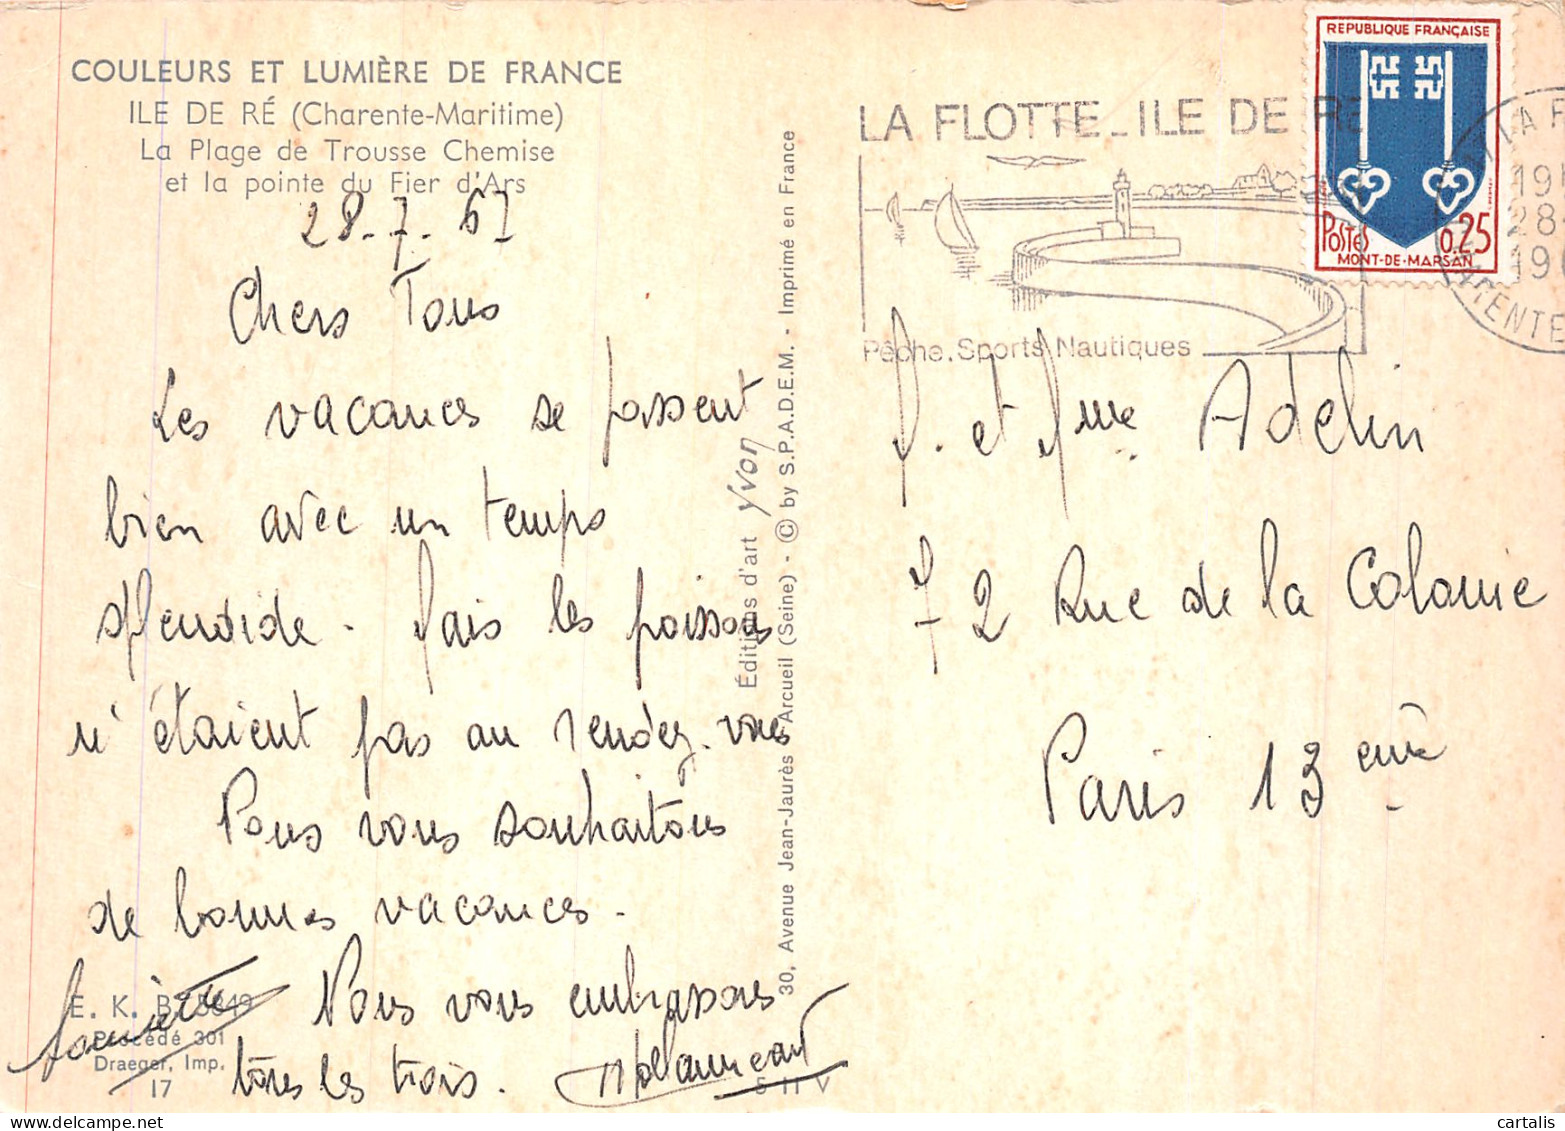 COULEURS ET LUMIÈRE DE FRANCE
ILE DE RÉ (Charente-Maritime)
La Plage de Trousse Chemise
et la pointe du Fier d'Ars
28.7.67
Chers Tous
Les vacances se passent
bien avec un temps
splendide. Mais les poissons
n'étaient pas au rendez-vous
Nous vous souhaitons
de bonnes vacances.
Nous vous embrassons
tous les trois.
E. K. B.
Procédé 301
Draeger, Imp.
17
Éditions d'art Yvon
30, Avenue Jean-Jaurès Arcueil (Seine) - © by S.P.A.D.E.M. - Imprimé en France
LA FLOTTE_ILE DE RE
Pêche. Sports Nautiques
REPUBLIQUE FRANÇAISE
POSTES 0,25
MONT-DE-MARSAN
LA F
28
M. et Mme Adelin
72 Rue de la Colonie
Paris 13ème